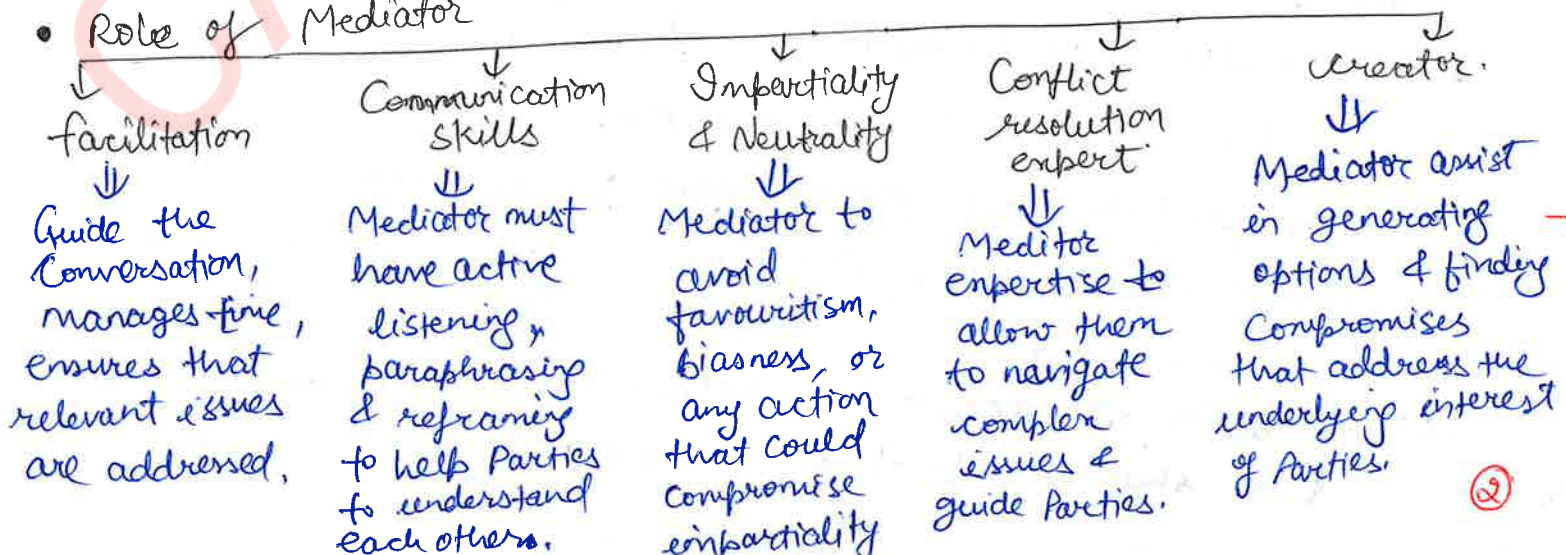 • Role of Mediator
facilitation
Guide the
Conversation,
manages time,
ensures that
relevant issues
are addressed.
Communication
skills
Mediator must
have active
listening,
paraphrasing
& reframing
to help Parties
to understand
each others.
Impartiality
& Neutrality
Mediator to
avoid
favouritism,
biasness, or
any action
that could
compromise
impartiality
Conflict
resolution
expert
Meditor
expertise to
allow them
to navigate
complex
issues &
guide Parties.
creator.
Mediator assist
in generating
options & finding
Compromises
that address the
underlying interest
of Parties.
2